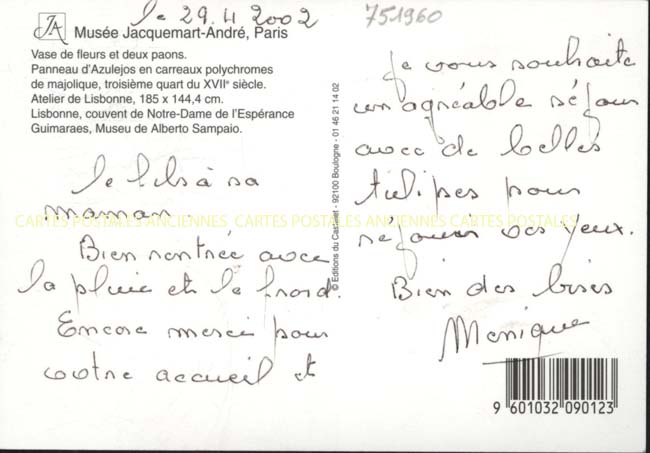 le 29.4 2002
751960
JA Musée Jacquemart-André, Paris
Vase de fleurs et deux paons.
Panneau d'Azulejos en carreaux polychromes
de majolique, troisième quart du XVIIe siècle.
Atelier de Lisbonne, 185 x 144,4 cm.
Lisbonne, couvent de Notre-Dame de l'Espérance
Guimaraes, Museu de Alberto Sampaio.
le bls à sa
maman.
Bien rentrée avec
la pluie et le froid.
Encore merci pour
votre accueil et
© Editions du Castelet - 92100 Boulogne - 01 46 21 14 02
Je vous souhaite
un agréable séjour
avec de belles
tulipes pour
réjouir vos yeux.
Bien des bises
Monique
CARTES POSTALES ANCIENNES CARTES POSTALES ANCIENNES CARTES POSTALES
9 601032 090123